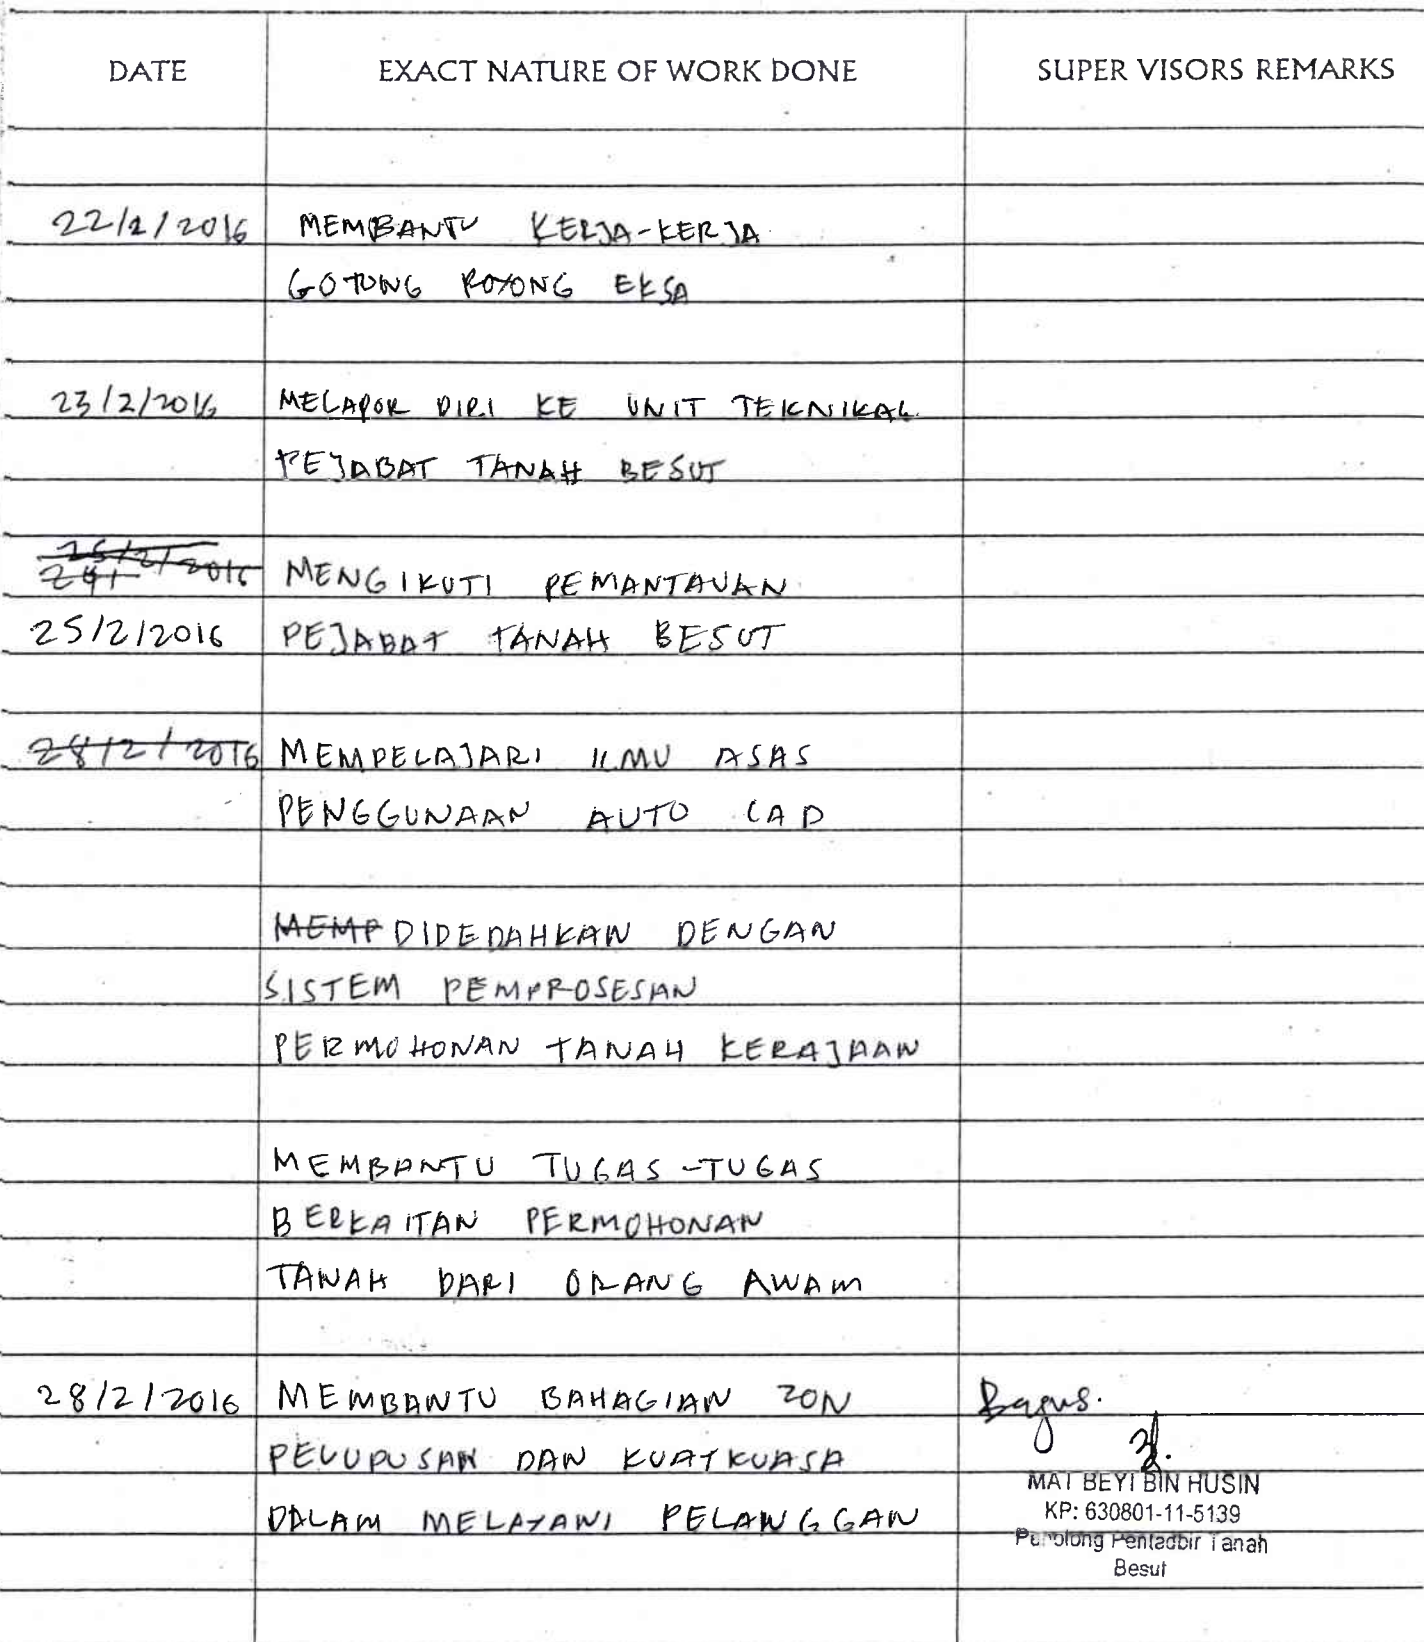 DATE EXACT NATURE OF WORK DONE SUPER VISORS REMARKS
22/2/2016 MEMBANTU KERJA-KERJA
GOTONG ROYONG EKSA
23/2/2016 MELAPOR DIRI KE UNIT TEKNIKAL
PEJABAT TANAH BESUT
25/2/2016
24/ MENGIKUTI PEMANTAUAN
25/2/2016 PEJABAT TANAH BESUT
28/2/2016 MEMPELAJARI ILMU ASAS
PENGGUNAAN AUTO CAD
MEMP DIDEDAHKAN DENGAN
SISTEM PEMPROSESAN
PERMOHONAN TANAH KERAJAAN
MEMBANTU TUGAS-TUGAS
BERKAITAN PERMOHONAN
TANAH DARI ORANG AWAM
28/2/2016 MEMBANTU BAHAGIAN ZON Bagus.
PELUPUSAN DAN KUATKUASA
MAT BEYI BIN HUSIN
DALAM MELAYANI PELANGGAN KP: 630801-11-5139
Penolong Pentadbir Tanah
Besut